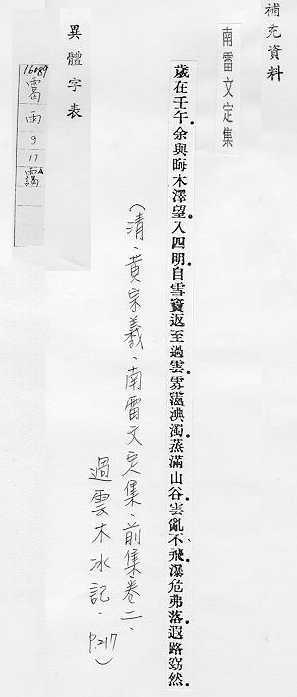 補充資料
南雷文定集
歲在壬午余與晦木澤望入四明自雪竇返至過雲雰靄淟濁蒸滿山谷雲亂不飛瀑危弗落遐路窈然
(清.黃宗羲.南雷文定集.前集卷二、
過雲木冰記.P.217)
異體字表
雨
9
17